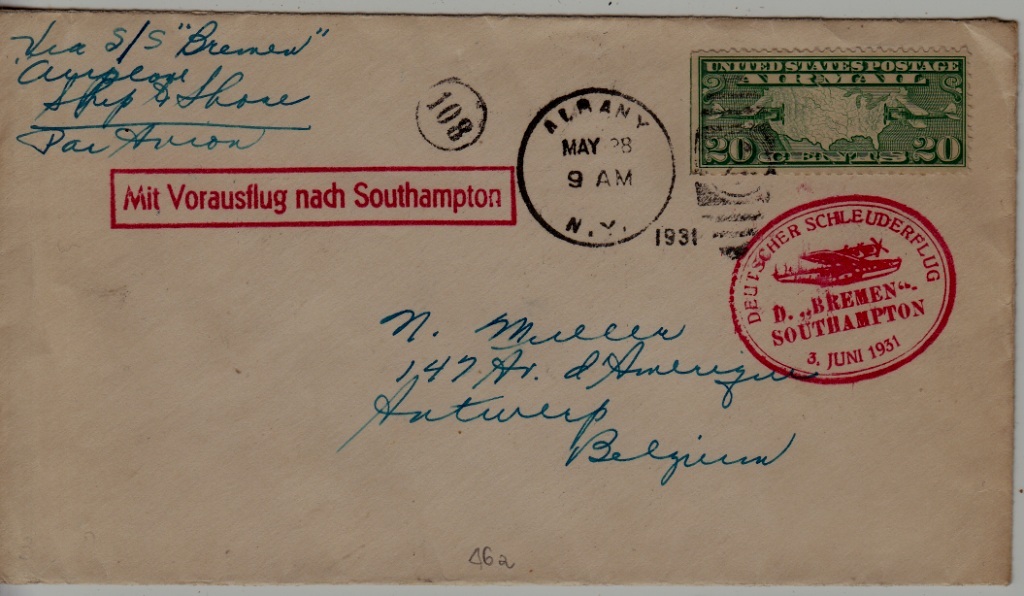 Via S/S "Bremen"
Airplane
Ship to Shore
Par Avion
108
ALBANY
MAY 28
9 AM
N.Y.
1931
UNITED STATES POSTAGE
AIR MAIL
20 CENTS 20
Mit Vorausflug nach Southampton
DEUTSCHER SCHLEUDERFLUG
D. „BREMEN“-
SOUTHAMPTON
3. JUNI 1931
N. Muller
147 Av. d'Amerique
Antwerp
Belgium
462